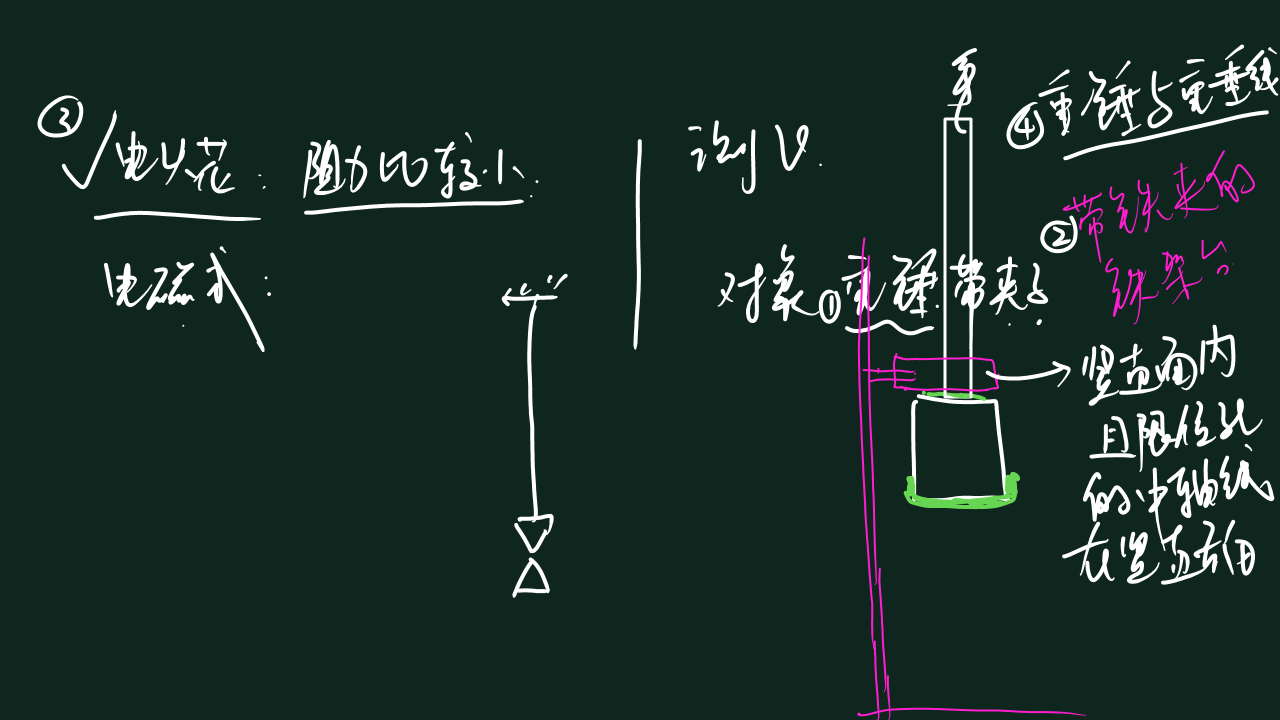 ③ √电火花: 阻力比较小.
电磁式:
测V.
对象①重锤带夹子.
手
④重锤与重垂线
②带铁夹的
铁架台
竖直面内
且限位孔
的中轴线
在竖直方向